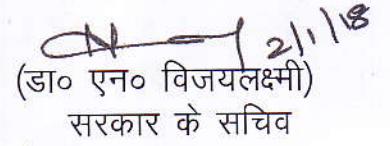 2/1/18
(डा० एन० विजयलक्ष्मी)
सरकार के सचिव